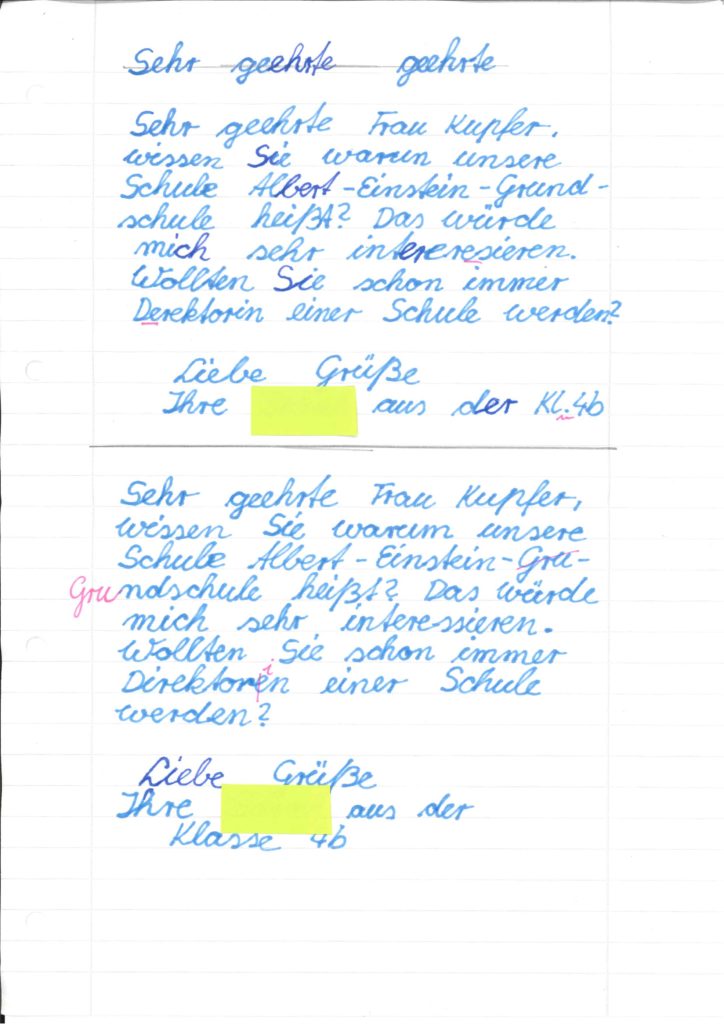 Sehr geehrte geehrte
Sehr geehrte Frau Kupfer,
wissen Sie warum unsere
Schule Albert-Einstein-Grund-
schule heißt? Das würde
mich sehr intereresieren.
Wollten Sie schon immer
Derektorin einer Schule werden?
Liebe Grüße
Ihre aus der Kl. 4b
Sehr geehrte Frau Kupfer,
wissen Sie warum unsere
Schule Albert-Einstein-Gru-
Grundschule heißt? Das würde
mich sehr interessieren.
Wollten Sie schon immer
Direktorin einer Schule
werden?
Liebe Grüße
Ihre aus der
Klasse 4b